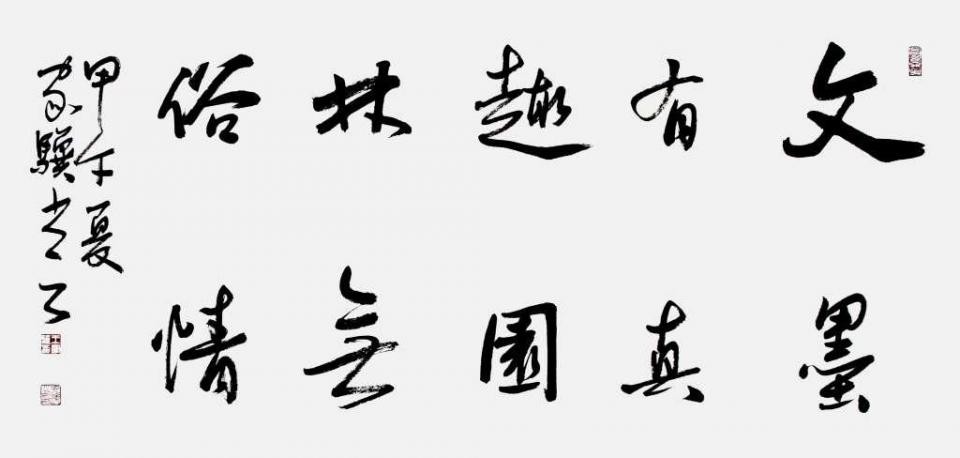 文墨
有真
趣園
林無
俗情
甲午夏
家驥